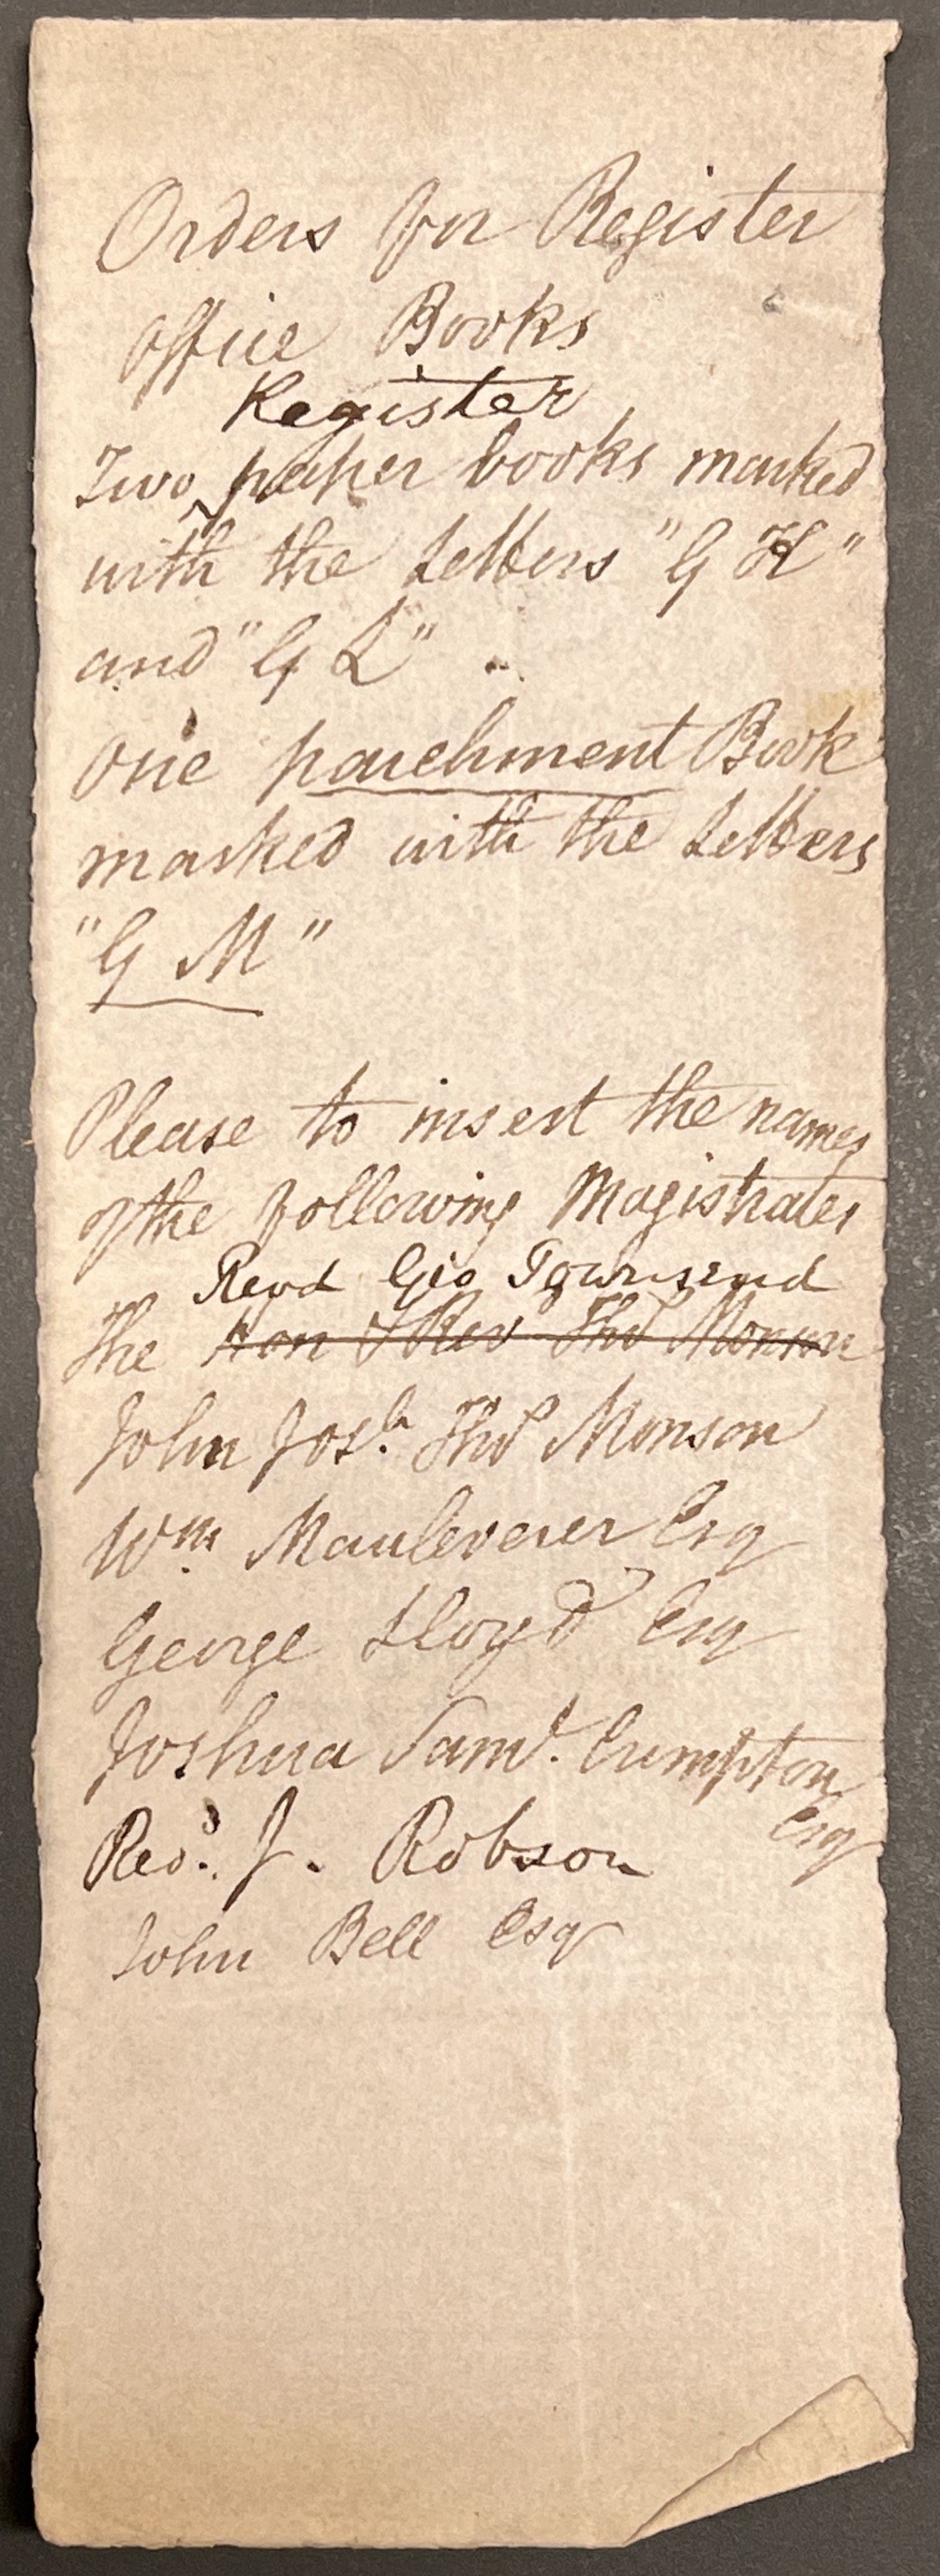 Orders for Register
Office Books
Register
Two ^ paper books marked
with the Letters "G H"
and "G L"
One parchment Book
marked with the Letters
"G M"
Please to insert the names
of the following Magistrates
Revd Geo Townsend
The Hon & Rev Thos Monson
John Josh. Thos Monson
Wm. Mauleverer Esq
George Lloyd Esq
Joshua Saml. Crompton
Esq
Revd. J. Robson
John Bell Esq